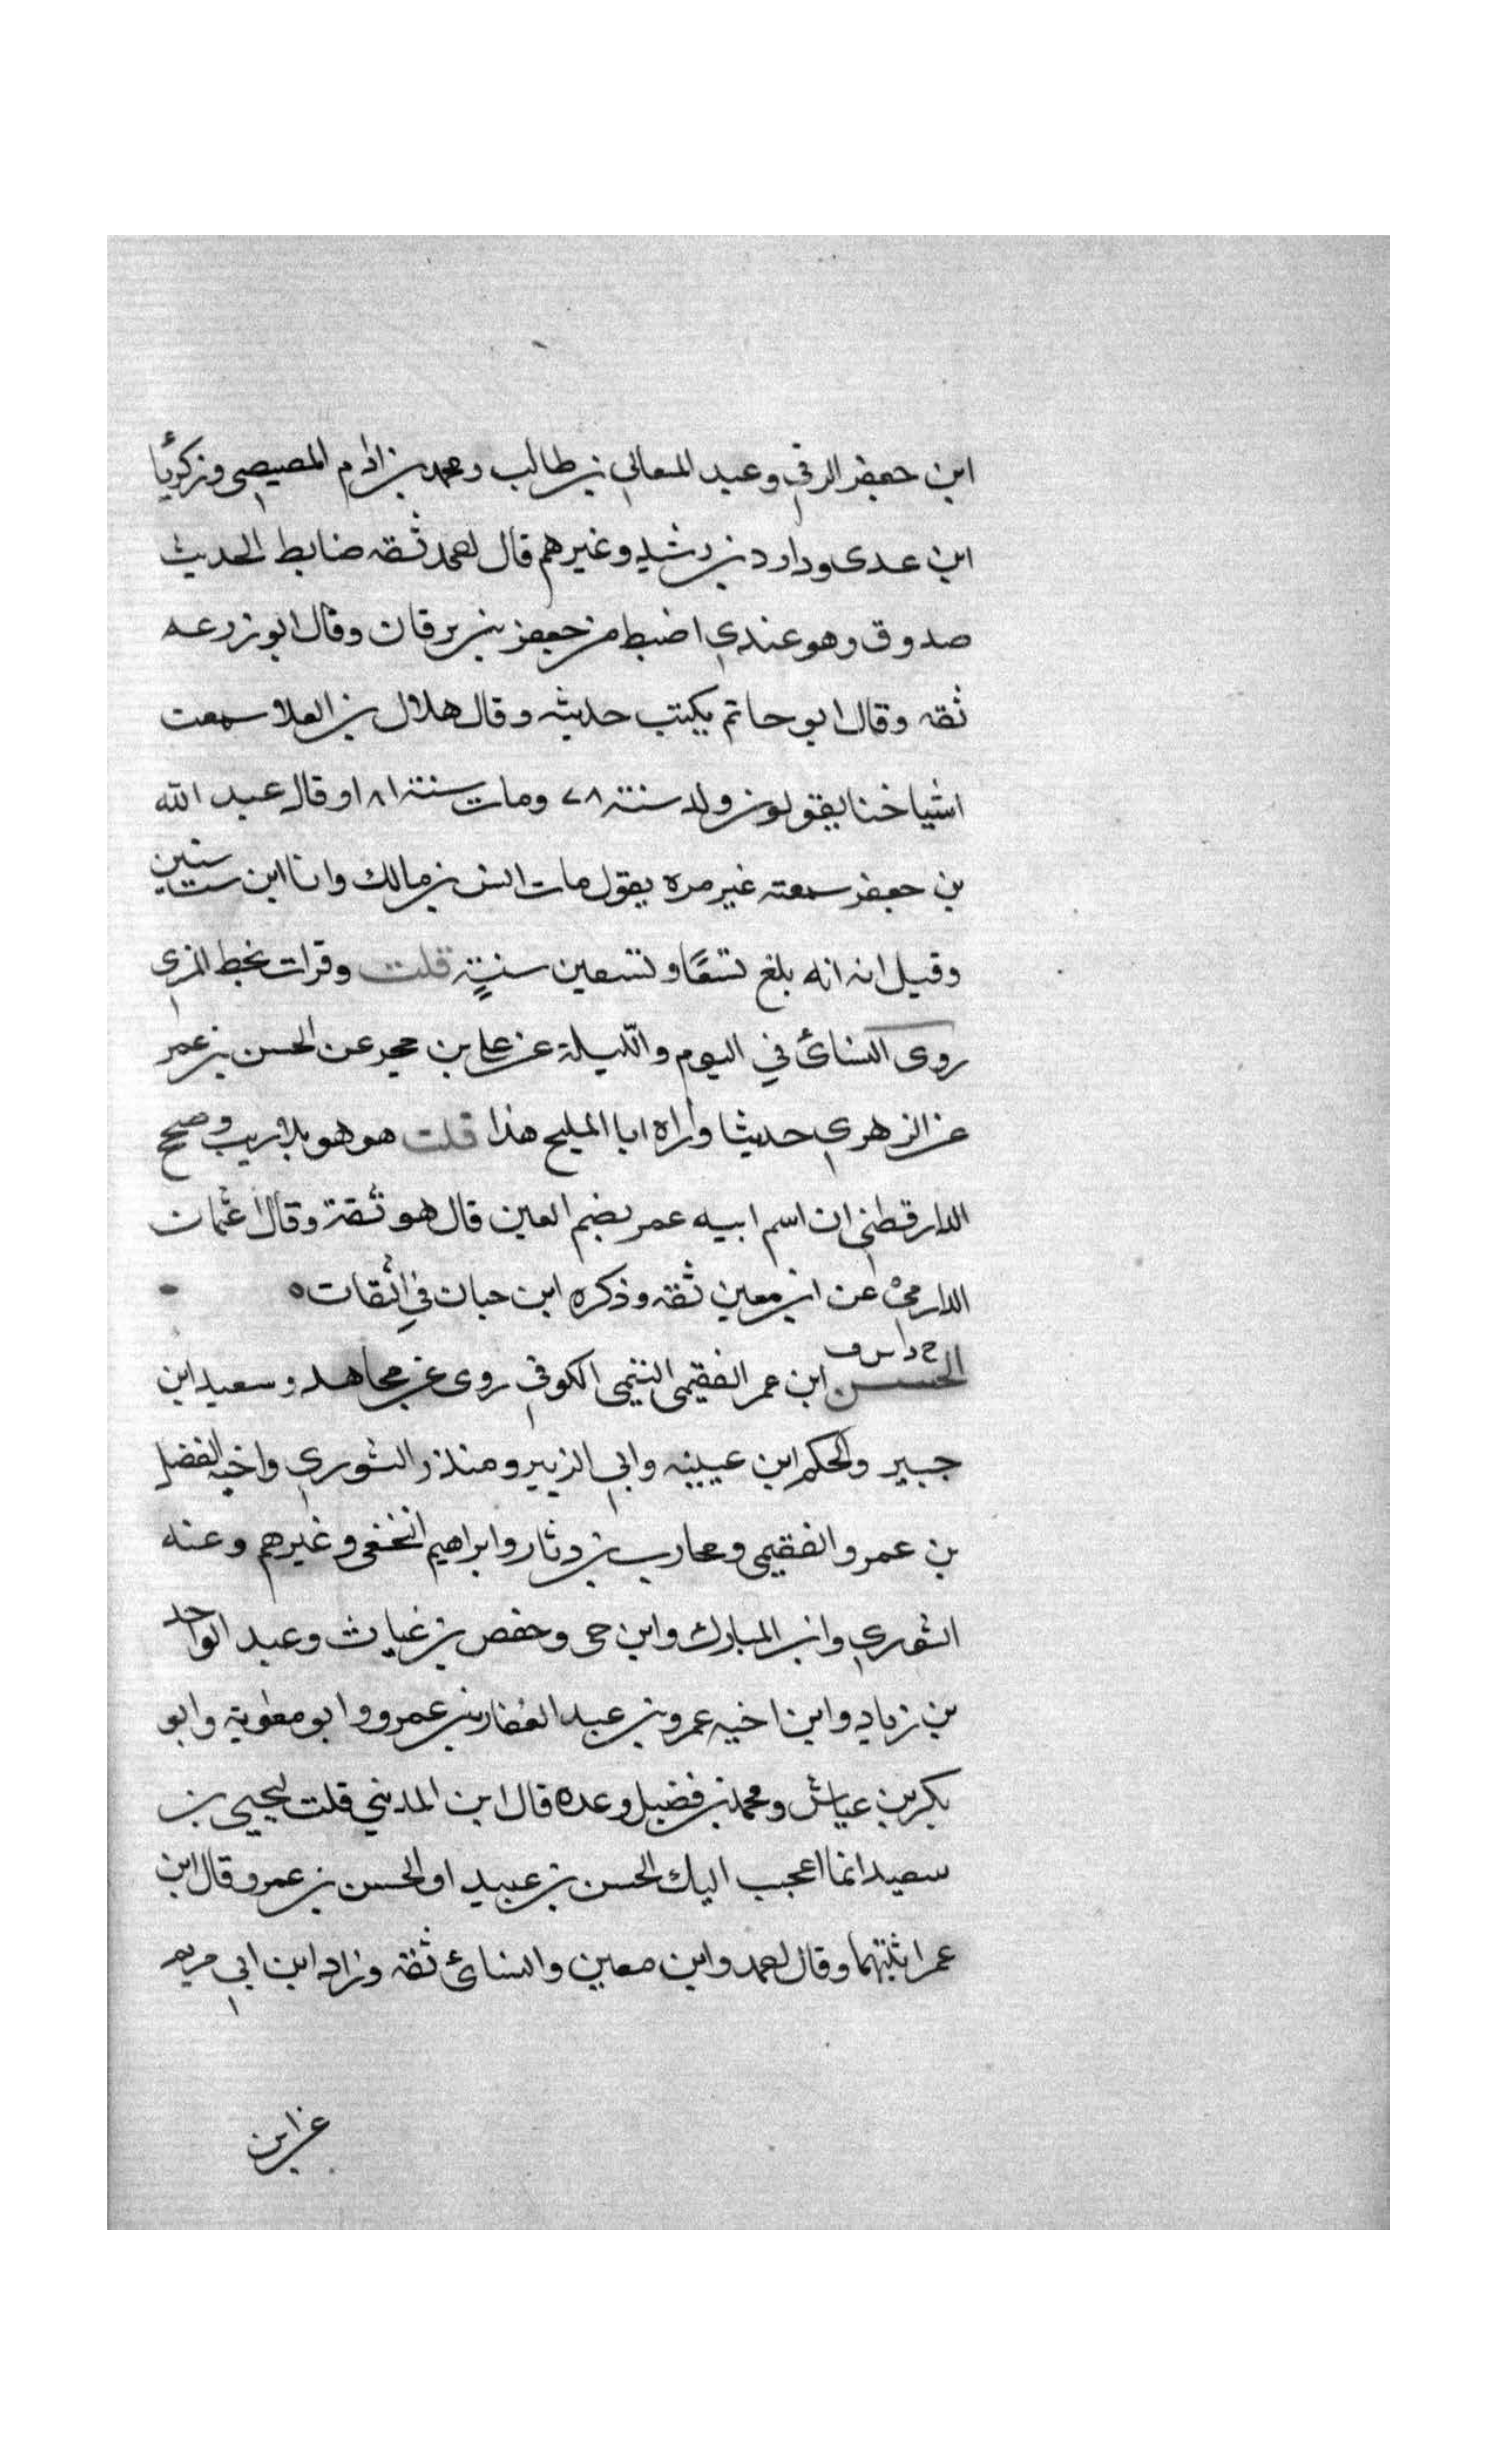 ابن جعفر الرقي وعبد المعالي بن طالب ومحمد بن ادم المصيصي وزكريا
ابن عدى وداود بن رشيد وغيرهم قال احمد ثقه ضابط الحديث
صدوق وهو عندي اضبط من جعفر بن برقان وقال ابو زرعه
ثقه وقال ابو حاتم يكتب حديثه وقال هلال بن العلا سمعت
اشياخنا يقولون ولد سنة ٨٧ ومات سنة ١٨١ وقال عبد الله
بن جعفر سمعته غير مره يقول مات انس بن مالك وانا ابن ست سنين
وقيل انه انه بلغ تسعًا وتسعين سنةٍ قلت وقرات بخط المزي
روى النسائ في اليوم والليلة عن علي بن حجر عن الحسن بن عمر
عن الزهري حديثا واراه ابا المليح هذا قلت هو هو بلا ريب وصحح
الدارقطني ان اسم ابيه عمر بضم العين قال هو ثقة وقال عثمان
الدارمي عن ابن معين ثقه وذكره ابن حبان في الثقات ه
خ د س ق
الحسن ابن عمر الفقيمى التيمى الكوفي روى عن مجاهد وسعيد ابن
جبير والحكم ابن عيينه وابي الزبير ومنذر الثوري واخيه الفضل
بن عمرو الفقيمى ومحارب بن دثار وابراهيم النخعى وغيرهم وعنه
الثوري وابن المبارك وابن حى وحفص بن غياث وعبد الواحد
بن زياد وابن اخيه عمرو بن عبد الغفار بن عمرو وابو معاوية وابو
بكر بن عياش ومحمد بن فضيل وعده قال ابن المديني قلت ليحيى بن
سعيد انما اعجب اليك الحسن بن عبيد او الحسن بن عمرو قال ابن
عمر اثبتهما وقال احمد وابن معين والنسائ ثقه وزاد ابن ابي مريم
عن ابن